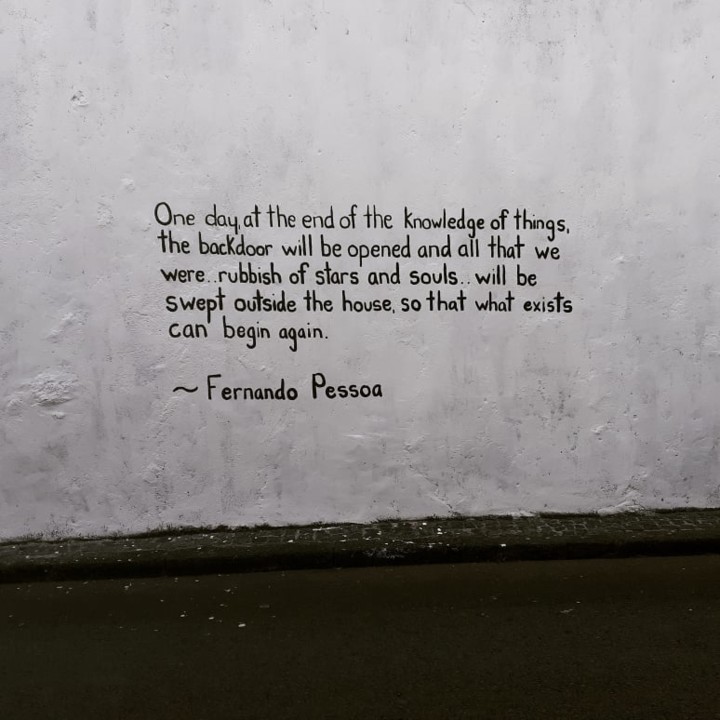 One day, at the end of the knowledge of things,
the backdoor will be opened and all that we
were..rubbish of stars and souls..will be
swept outside the house, so that what exists
can begin again.
~ Fernando Pessoa